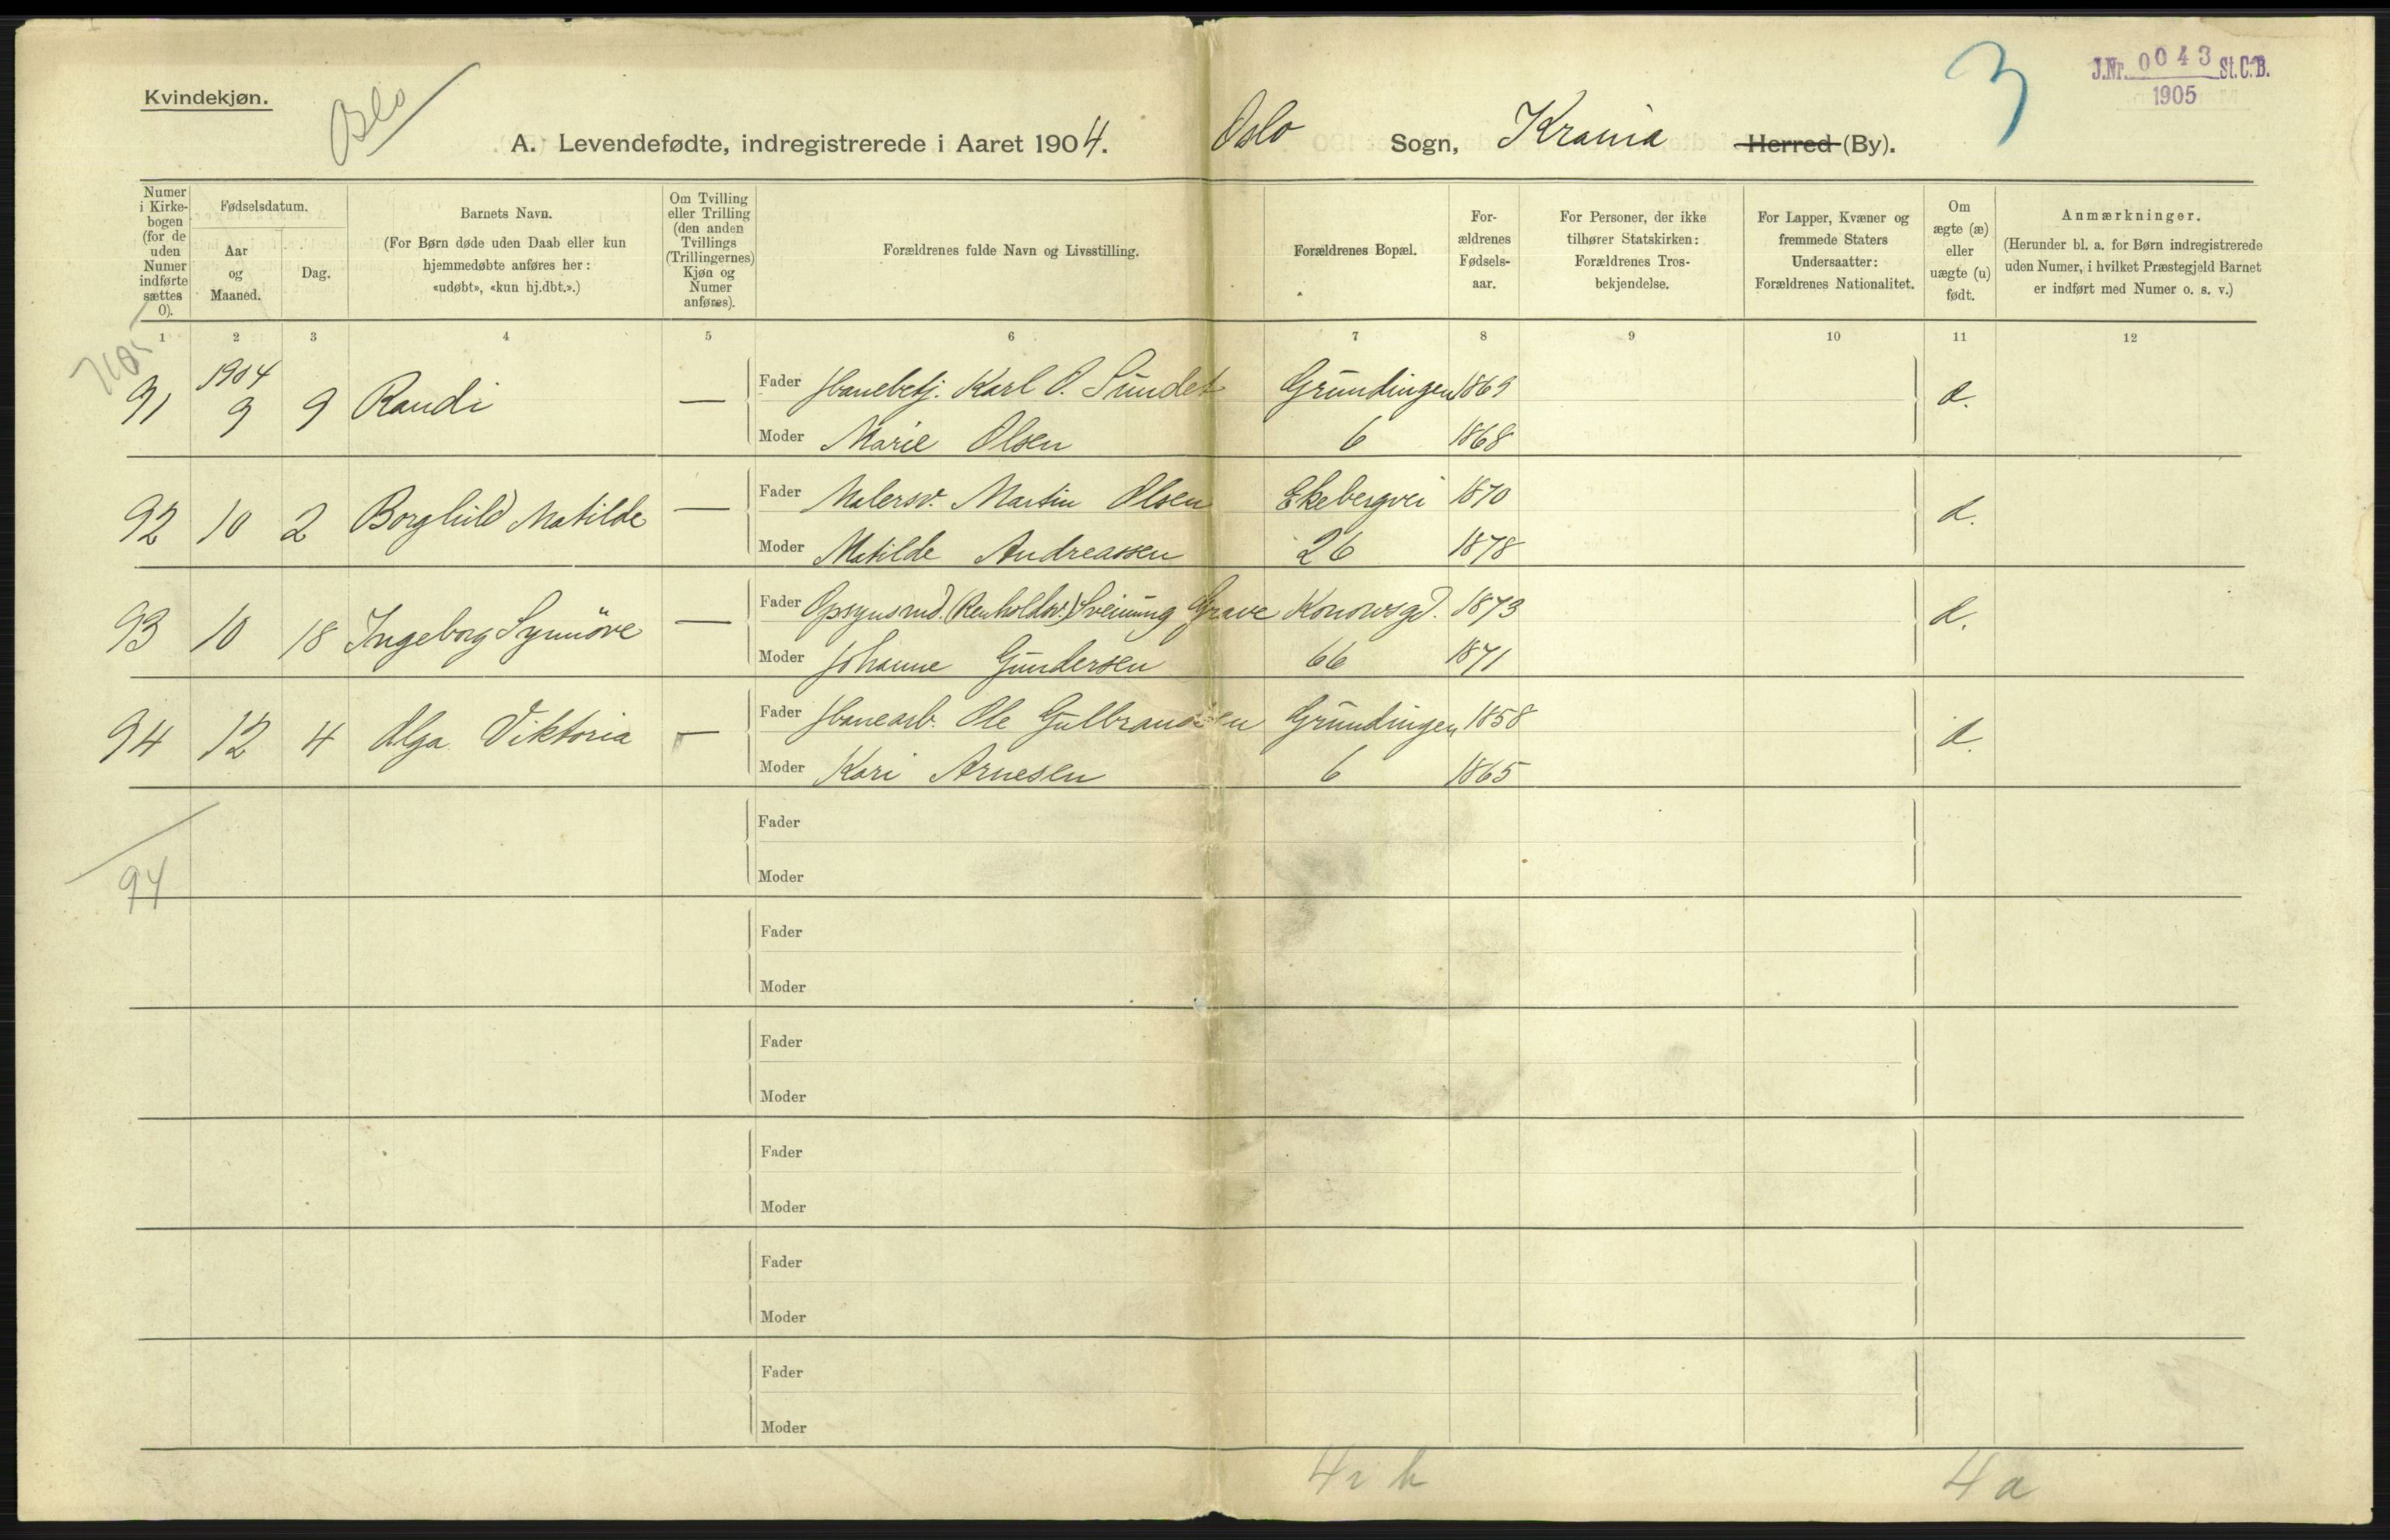 J.Nr. 0043 St.C.B.
1905
3
Kvindekjøn.
Oslo
A. Levendefødte, indregistrerede i Aaret 1904. Oslo Sogn, Krania Herred (By).
Numer i Kirkebogen (for de uden Numer indførte sættes 0).
Fødselsdatum.
Aar og Maaned.
Dag.
Barnets Navn.
(For Børn døde uden Daab eller kun hjemmedøbte anføres her: «udøbt», «kun hj.dbt.».)
Om Tvilling eller Trilling (den anden Tvillings (Trillingernes) Kjøn og Numer anføres).
Forældrenes fulde Navn og Livsstilling.
Forældrenes Bopæl.
Forældrenes Fødselsaar.
For Personer, der ikke tilhører Statskirken: Forældrenes Trosbekjendelse.
For Lapper, Kvæner og fremmede Staters Undersaatter: Forældrenes Nationalitet.
Om ægte (æ) eller uægte (u) født.
Anmærkninger.
(Herunder bl. a. for Børn indregistrerede uden Numer, i hvilket Præstegjeld Barnet er indført med Numer o. s. v.)
1 2 3 4 5 6 7 8 9 10 11 12
1904
91 9 9 Randi — Fader Jbanebetj. Karl O. Sundet Grundingen 1869 æ.
Moder Marie Olsen 6 1868
92 10 2 Borghild Matilde — Fader Malersv. Martin Olsen Ekebergvei 1870 æ.
Moder Matilde Andreassen 26 1878
93 10 18 Ingeborg Synnöve — Fader Opsynsmd. (Renholdsv.) Sveinung Grave Konowsgd. 1873 æ.
Moder Johanne Gundersen 66 1871
94 12 4 Olga Viktoria — Fader Jbanearb. Ole Gulbrandsen Grundingen 1858 æ.
Moder Kari Arnesen 6 1865
Fader
94
Moder
Fader
Moder
Fader
Moder
Fader
Moder
Fader
Moder
Fader
Moder
4a